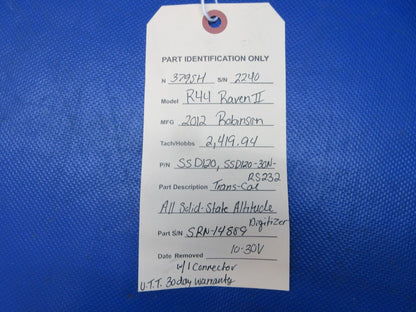 PART IDENTIFICATION ONLY
N 379SH S/N 2240
Model R44 Raven II
MFG 2012 Robinson
Tach/Hobbs 2,419.94
P/N SSD120, SSD120-30N-
RS232
Part Description Trans-Cal
All Solid-State Altitude
Digitizer
Part S/N SRN-14889
Date Removed 10-30V
w/ 1 Connector
U.T.T. 30 day warranty